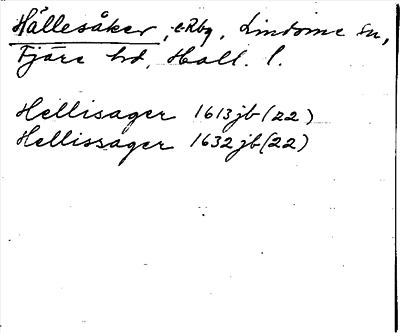 Hällesåker, eRbg, Lindome sn,
Fjäre hd, Hall. l.
Hellisager 1613 jb (22)
Hellissager 1632 jb (22)